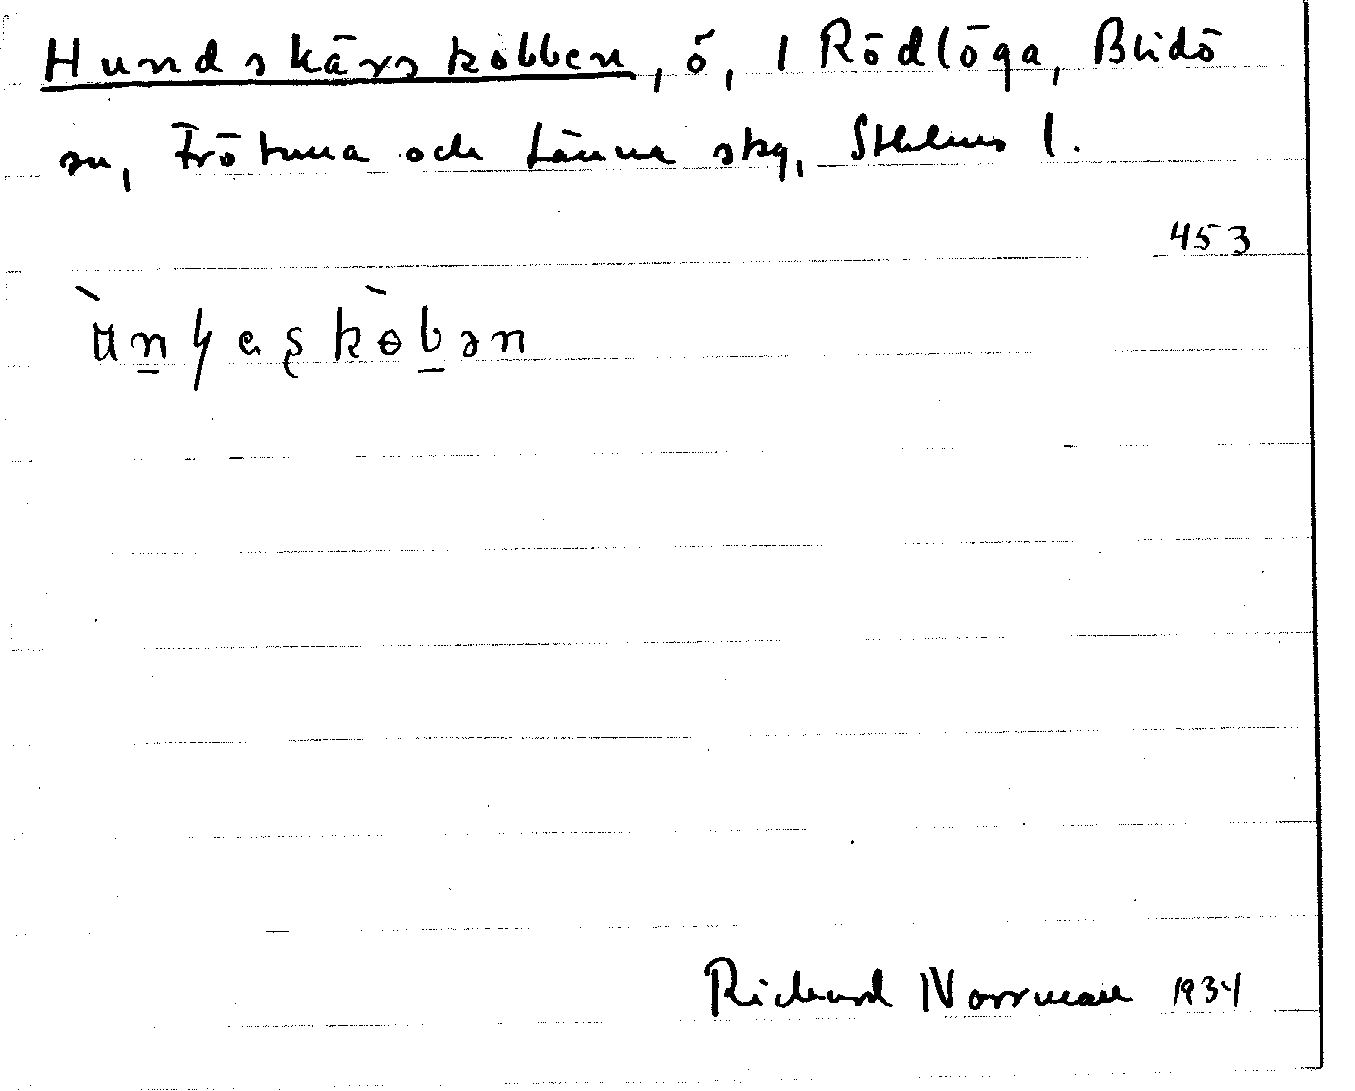 Hundskärskobben, ö, 1 Rödlöga, Blidö
sn, Frötuna och Länna skg, Sthlms l.
453
Richard Norrman 1934